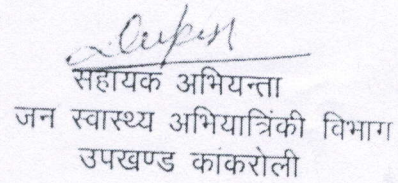 सहायक अभियन्ता
जन स्वास्थ्य अभियात्रिंकी विभाग
उपखण्ड कांकरोली